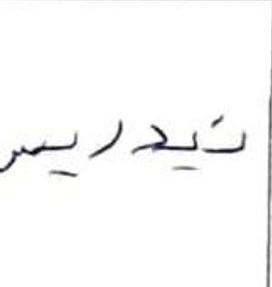 تيدريس